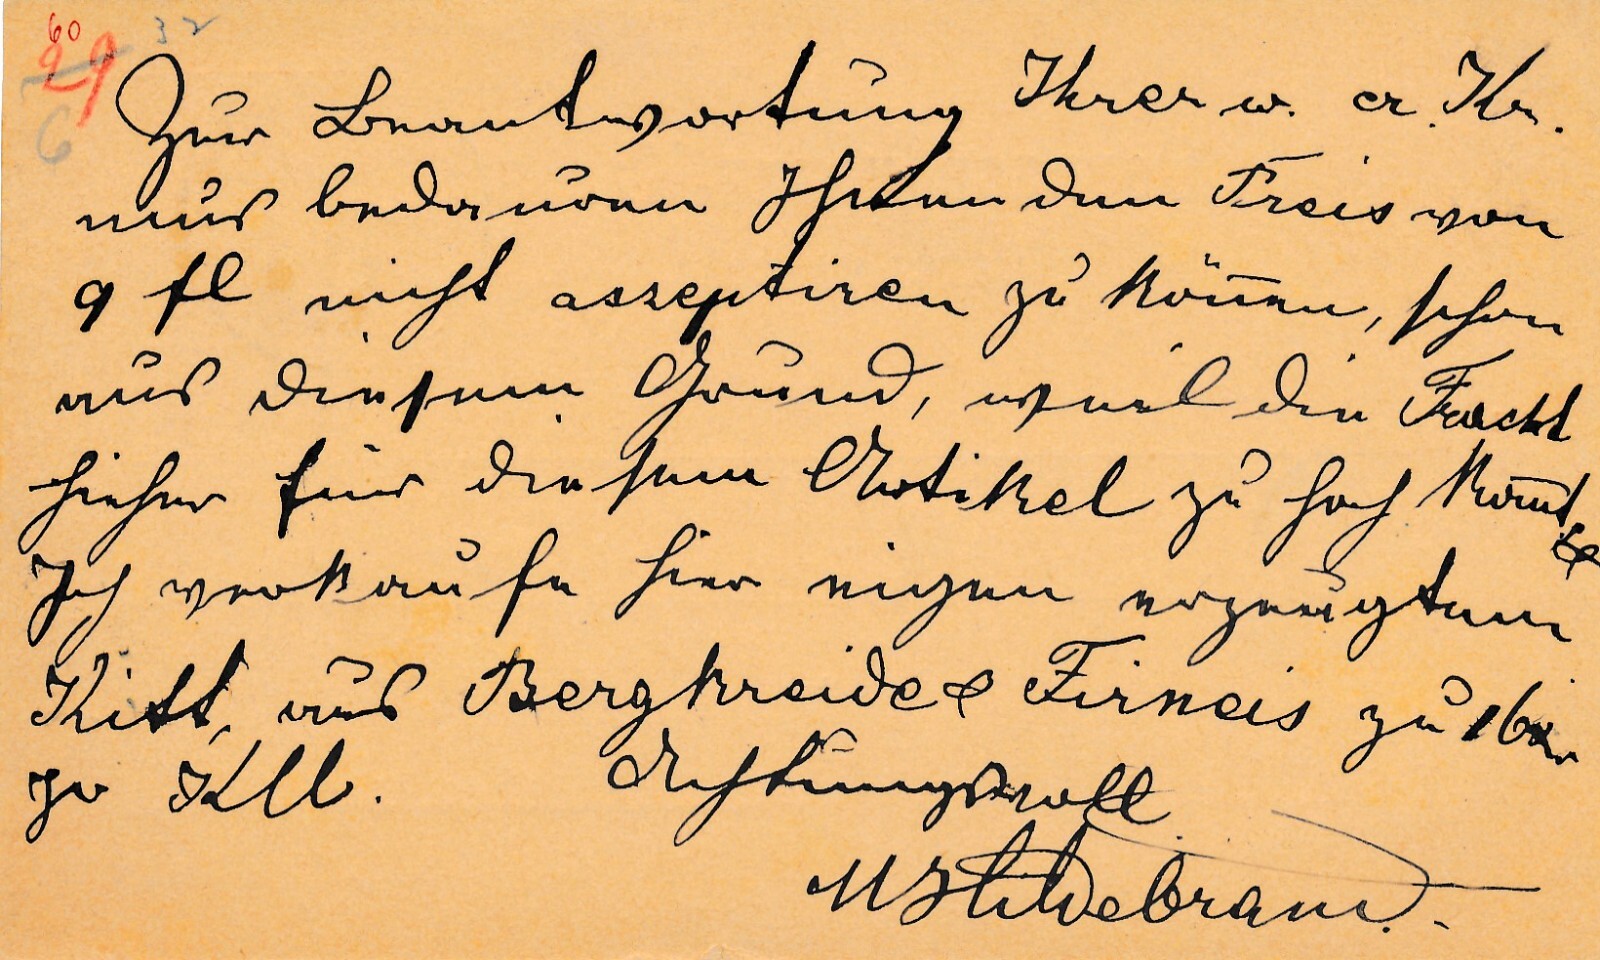 60
29 32
6
Zur Beantwortung Ihrer w. er. Kr.
mus bedauren Ihnen den Preis von
9 fl nicht asseptiren zu können, schon
aus diesem Grund, weil die Fracht
hieher für diesem Artikel zu hoch komt, &
Ich verkaufe hier eigen erzeugten
Kitt, aus Bergkreide & Firneis zu 16 kr
pr Kll. Achtungsvoll
M Hildebrand.